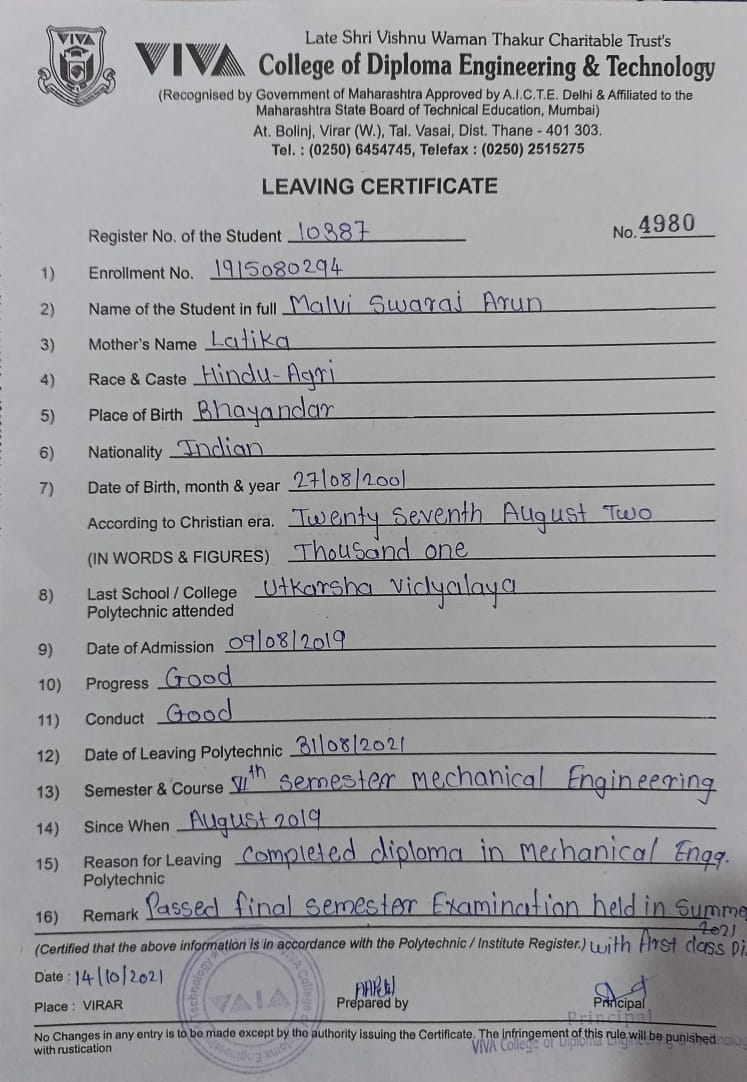 VIVA
Late Shri Vishnu Waman Thakur Charitable Trust's
VIVA College of Diploma Engineering & Technology
(Recognised by Government of Maharashtra Approved by A.I.C.T.E. Delhi & Affiliated to the
Maharashtra State Board of Technical Education, Mumbai)
At. Bolinj, Virar (W.), Tal. Vasai, Dist. Thane - 401 303.
Tel. : (0250) 6454745, Telefax : (0250) 2515275
LEAVING CERTIFICATE
Register No. of the Student 10387 No. 4980
1) Enrollment No. 1915080294
2) Name of the Student in full Malvi Swaraj Arun
3) Mother's Name Latika
4) Race & Caste Hindu-Agri
5) Place of Birth Bhayandar
6) Nationality Indian
7) Date of Birth, month & year 27/08/2001
According to Christian era. Twenty Seventh August Two
(IN WORDS & FIGURES) Thousand one
8) Last School / College Utkarsha Vidyalaya
Polytechnic attended
9) Date of Admission 09/08/2019
10) Progress Good
11) Conduct Good
12) Date of Leaving Polytechnic 31/08/2021
13) Semester & Course VIth semester mechanical Engineering
14) Since When August 2019
15) Reason for Leaving completed diploma in mechanical Engg.
Polytechnic
16) Remark Passed final semester Examination held in summe
2021
(Certified that the above information is in accordance with the Polytechnic / Institute Register.) with first class Di
Date : 14/10/2021
Place : VIRAR Prepared by Principal
Principal
No Changes in any entry is to be made except by the authority issuing the Certificate. The infringement of this rule will be punished
with rustication VIVA College of Diploma Engineering